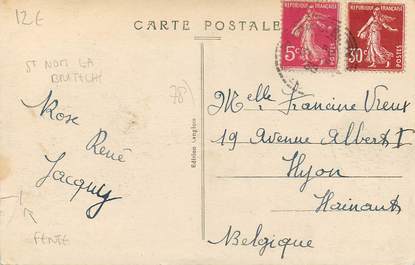 12€
CARTE POSTALE
RÉPUBLIQUE FRANÇAISE
5c POSTES
RÉPUBLIQUE FRANÇAISE
30c POSTES
ST NOM LA
BRETECHE
78)
Rose
René
Jacquy
FENTE
Edition Langlois
Melle Francine Vreux
19 Avenue Albert I
Hyon
Hainaut
Belgique